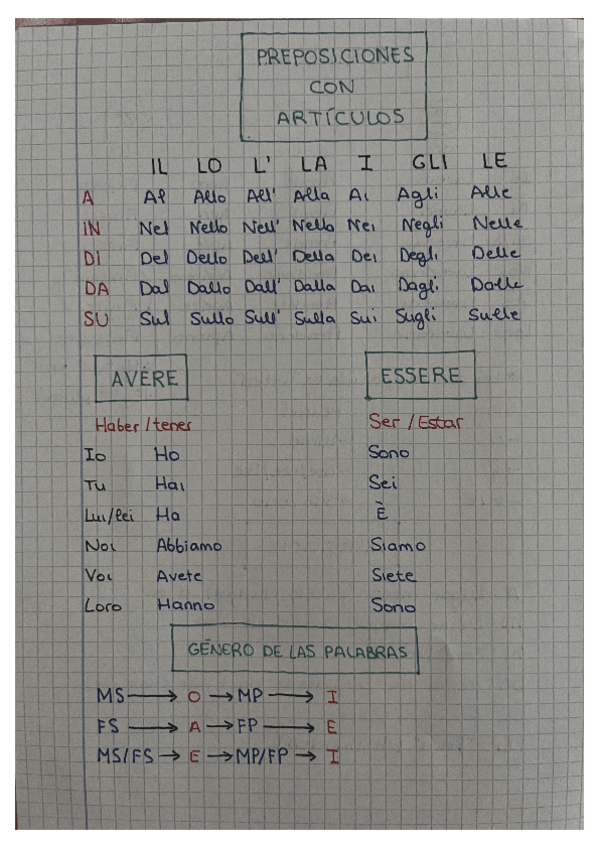 PREPOSICIONES
CON
ARTÍCULOS
IL LO L' LA I GLI LE
A Al Allo All' Alla Ai Agli Alle
IN Nel Nello Nell' Nella Nei Negli Nelle
DI Del Dello Dell' Della Dei Degli Delle
DA Dal Dallo Dall' Dalla Dai Dagli Dalle
SU Sul Sullo Sull' Sulla Sui Sugli Sulle
AVÉRE ESSERE
Haber/tener Ser/Estar
Io Ho Sono
Tu Hai Sei
Lui/lei Ha È
Noi Abbiamo Siamo
Voi Avete Siete
Loro Hanno Sono
GÉNERO DE LAS PALABRAS
MS → O → MP → I
FS → A → FP → E
MS/FS → E → MP/FP → I